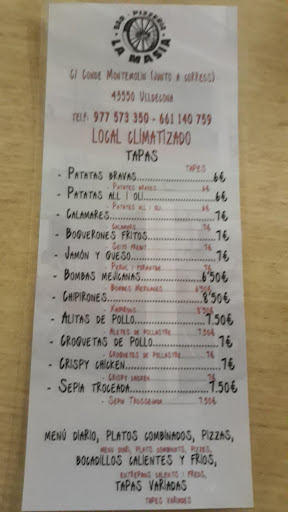 BAR - PIZZERIA
LA MASIA
C/ CONDE MONTEMOLIN (JUNTO A CORREOS)
43550 ULLDECONA
TELF: 977 573 350 - 661 140 759
LOCAL CLIMATIZADO
TAPAS
TAPES
- PATATAS BRAVAS 6€
- PATATES BRAVES 6€
- PATATAS ALL I OLI 6€
- PATATES ALL I OLI 6€
- CALAMARES 7€
- CALAMARS 7€
- BOQUERONES FRITOS 7€
- SEITÓ FREGIT 7€
- JAMÓN Y QUESO 7€
- PERNIL I FORMATGE 7€
- BOMBAS MEJICANAS 6'50€
- BOMBES MEXICANES 6'50€
- CHIPIRONES 8'50€
- XIPIRONS 8'50€
- ALITAS DE POLLO 7.50€
- ALETES DE POLLASTRE 7.50€
- CROQUETAS DE POLLO 7€
- CROQUETES DE POLLASTRE 7€
- CRISPY CHICKEN 7€
- CRISPY CHICKEN 7€
- SEPIA TROCEADA 7.50€
- SEPIA TROSSEJADA 7.50€
MENÚ DIARIO, PLATOS COMBINADOS, PIZZAS,
MENÚ DIARI, PLATS COMBINATS, PIZZES,
BOCADILLOS CALIENTES Y FRIOS,
ENTREPANS CALENTS I FREDS,
TAPAS VARIADAS
TAPES VARIADES